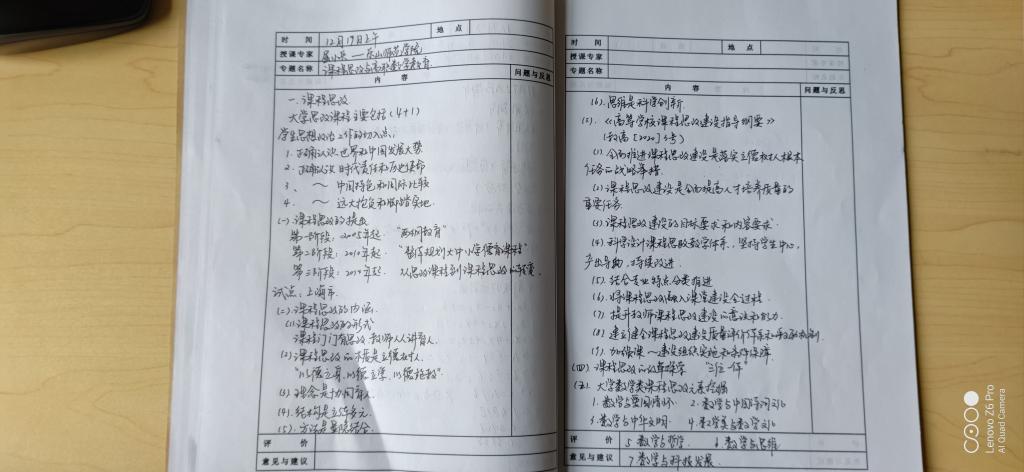 时 间 12月19日上午 地 点
授课专家 乐山师范学院
专题名称 课程思政与高校数学教育
内 容 问题与反思
一、课程思政
大学思政课程主要包括(4+1)
学生思想政治工作的切入点:
1、正确认识世界和中国发展大势
2、正确认识时代责任和历史使命
3、 〜 中国特色和国际比较
4、 〜 远大抱负和脚踏实地
(一)课程思政的提出
第一阶段:2005年起 "两纲教育"
第二阶段:2010年起 "整体规划大中小学德育课程"
第三阶段:2014年起 从思政课程到课程思政的转变
试点:上海市
(二)课程思政的内涵
(1)课程思政的形式
课程门门有思政 教师人人讲育人
(2)课程思政的本质是立德树人
"以德立身,以德立学,以德施教"
(3)理念是协同育人
(4)结构是立体多元
(5)方法是显隐结合
评 价
意见与建议
时 间 地 点
授课专家
专题名称
内 容 问题与反思
(6)思维是科学创新
(三)《高等学校课程思政建设指导纲要》
(教高[2020]3号)
(1)全面推进课程思政建设是落实立德树人根本
任务的战略举措
(2)课程思政建设是全面提高人才培养质量的
重要任务
(3)课程思政建设的目标要求和内容要求
(4)科学设计课程思政教学体系,坚持学生中心,
产出导向,持续改进
(5)结合专业特点分类推进
(6)将课程思政融入课堂建设全过程
(7)提升教师课程思政建设的意识和能力
(8)建立健全课程思政建设质量评价体系和激励机制
(9)加强课〜建设组织实施和条件保障
(四)课程思政的改革操学 "三位一体"
(五)大学数学类课程思政元素挖掘
1、数学与爱国情怀 2、数学与中国诗词文化
3、数学与中华文明 4、数学美与数学文化
评 价 5 数学与哲学 6 数学与思维
意见与建议 7 数学与科技发展
Lenovo Z6 Pro
AI Quad Camera